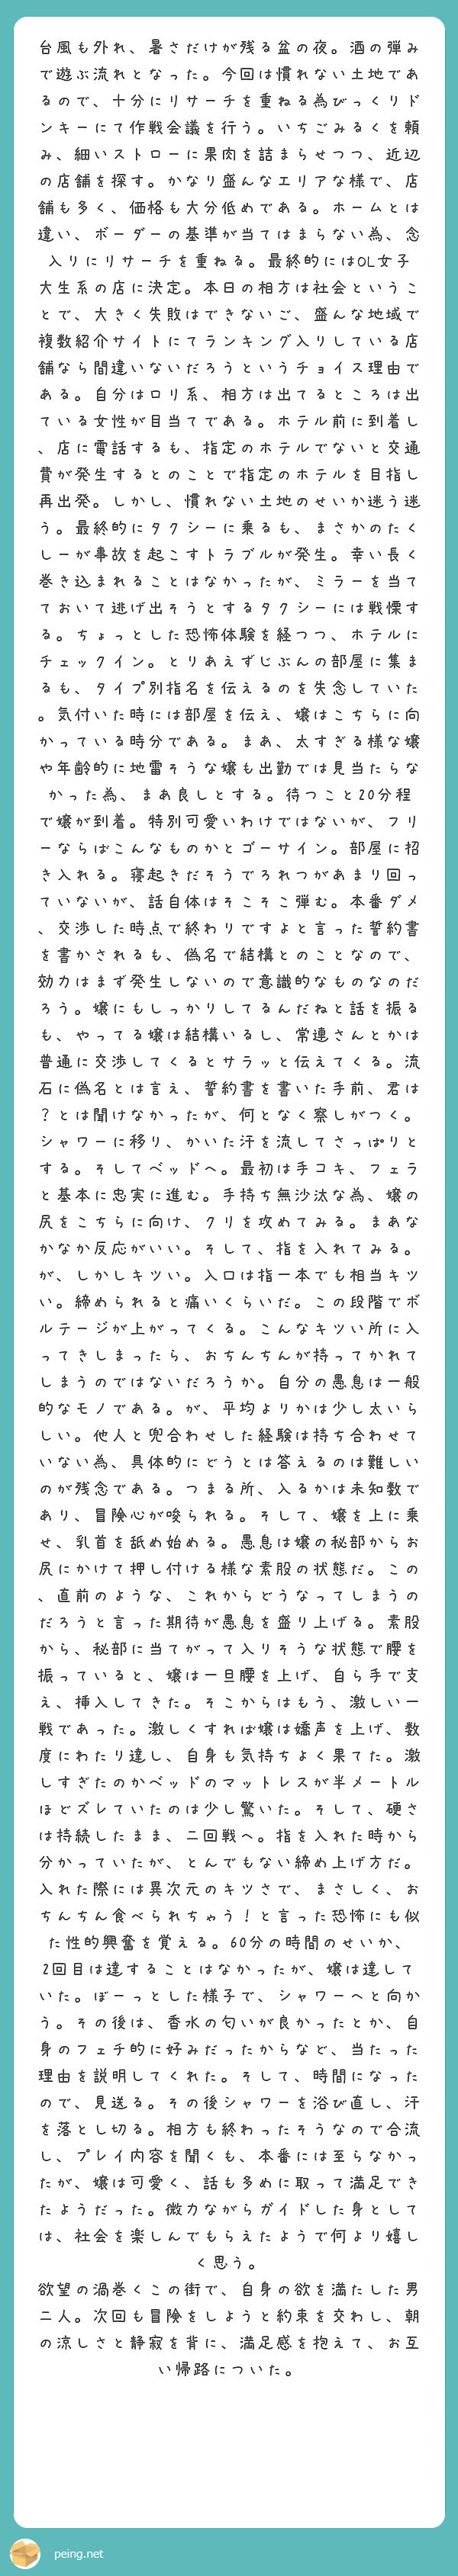 台風も外れ、暑さだけが残る盆の夜。酒の弾み
で遊ぶ流れとなった。今回は慣れない土地であ
るので、十分にリサーチを重ねる為びっくりド
ンキーにて作戦会議を行う。いちごみるくを頼
み、細いストローに果肉を詰まらせつつ、近辺
の店舗を探す。かなり盛んなエリアな様で、店
舗も多く、価格も大分低めである。ホームとは
違い、ボーダーの基準が当てはまらない為、念
入りにリサーチを重ねる。最終的にはOL女子
大生系の店に決定。本日の相方は社会というこ
とで、大きく失敗はできないご、盛んな地域で
複数紹介サイトにてランキング入りしている店
舗なら間違いないだろうというチョイス理由で
ある。自分はロリ系、相方は出てるところは出
ている女性が目当てである。ホテル前に到着し
、店に電話するも、指定のホテルでないと交通
費が発生するとのことで指定のホテルを目指し
再出発。しかし、慣れない土地のせいか迷う迷
う。最終的にタクシーに乗るも、まさかのたく
しーが事故を起こすトラブルが発生。幸い長く
巻き込まれることはなかったが、ミラーを当て
ておいて逃げ出そうとするタクシーには戦慄す
る。ちょっとした恐怖体験を経つつ、ホテルに
チェックイン。とりあえずじぶんの部屋に集ま
るも、タイプ別指名を伝えるのを失念していた
。気付いた時には部屋を伝え、嬢はこちらに向
かっている時分である。まあ、太すぎる様な嬢
や年齢的に地雷そうな嬢も出勤では見当たらな
かった為、まあ良しとする。待つこと20分程
で嬢が到着。特別可愛いわけではないが、フリ
ーならばこんなものかとゴーサイン。部屋に招
き入れる。寝起きだそうでろれつがあまり回っ
ていないが、話自体はそこそこ弾む。本番ダメ
、交渉した時点で終わりですよと言った誓約書
を書かされるも、偽名で結構とのことなので、
効力はまず発生しないので意識的なものなのだ
ろう。嬢にもしっかりしてるんだねと話を振る
も、やってる嬢は結構いるし、常連さんとかは
普通に交渉してくるとサラッと伝えてくる。流
石に偽名とは言え、誓約書を書いた手前、君は
？とは聞けなかったが、何となく察しがつく。
シャワーに移り、かいた汗を流してさっぱりと
する。そしてベッドへ。最初は手コキ、フェラ
と基本に忠実に進む。手持ち無沙汰な為、嬢の
尻をこちらに向け、クリを攻めてみる。まあな
かなか反応がいい。そして、指を入れてみる。
が、しかしキツい。入口は指一本でも相当キツ
い。締められると痛いくらいだ。この段階でボ
ルテージが上がってくる。こんなキツい所に入
ってきしまったら、おちんちんが持ってかれて
しまうのではないだろうか。自分の愚息は一般
的なモノである。が、平均よりかは少し太いら
しい。他人と兜合わせした経験は持ち合わせて
いない為、具体的にどうとは答えるのは難しい
のが残念である。つまる所、入るかは未知数で
あり、冒険心が唆られる。そして、嬢を上に乗
せ、乳首を舐め始める。愚息は嬢の秘部からお
尻にかけて押し付ける様な素股の状態だ。この
、直前のような、これからどうなってしまうの
だろうと言った期待が愚息を盛り上げる。素股
から、秘部に当てがって入りそうな状態で腰を
振っていると、嬢は一旦腰を上げ、自ら手で支
え、挿入してきた。そこからはもう、激しい一
戦であった。激しくすれば嬢は嬌声を上げ、数
度にわたり達し、自身も気持ちよく果てた。激
しすぎたのかベッドのマットレスが半メートル
ほどズレていたのは少し驚いた。そして、硬さ
は持続したまま、二回戦へ。指を入れた時から
分かっていたが、とんでもない締め上げ方だ。
入れた際には異次元のキツさで、まさしく、お
ちんちん食べられちゃう！と言った恐怖にも似
た性的興奮を覚える。60分の時間のせいか、
2回目は達することはなかったが、嬢は達して
いた。ぼーっとした様子で、シャワーへと向か
う。その後は、香水の匂いが良かったとか、自
身のフェチ的に好みだったからなど、当たった
理由を説明してくれた。そして、時間になった
ので、見送る。その後シャワーを浴び直し、汗
を落とし切る。相方も終わったそうなので合流
し、プレイ内容を聞くも、本番には至らなかっ
たが、嬢は可愛く、話も多めに取って満足でき
たようだった。微力ながらガイドした身として
は、社会を楽しんでもらえたようで何より嬉し
く思う。
欲望の渦巻くこの街で、自身の欲を満たした男
二人。次回も冒険をしようと約束を交わし、朝
の涼しさと静寂を背に、満足感を抱えて、お互
い帰路についた。
peing.net